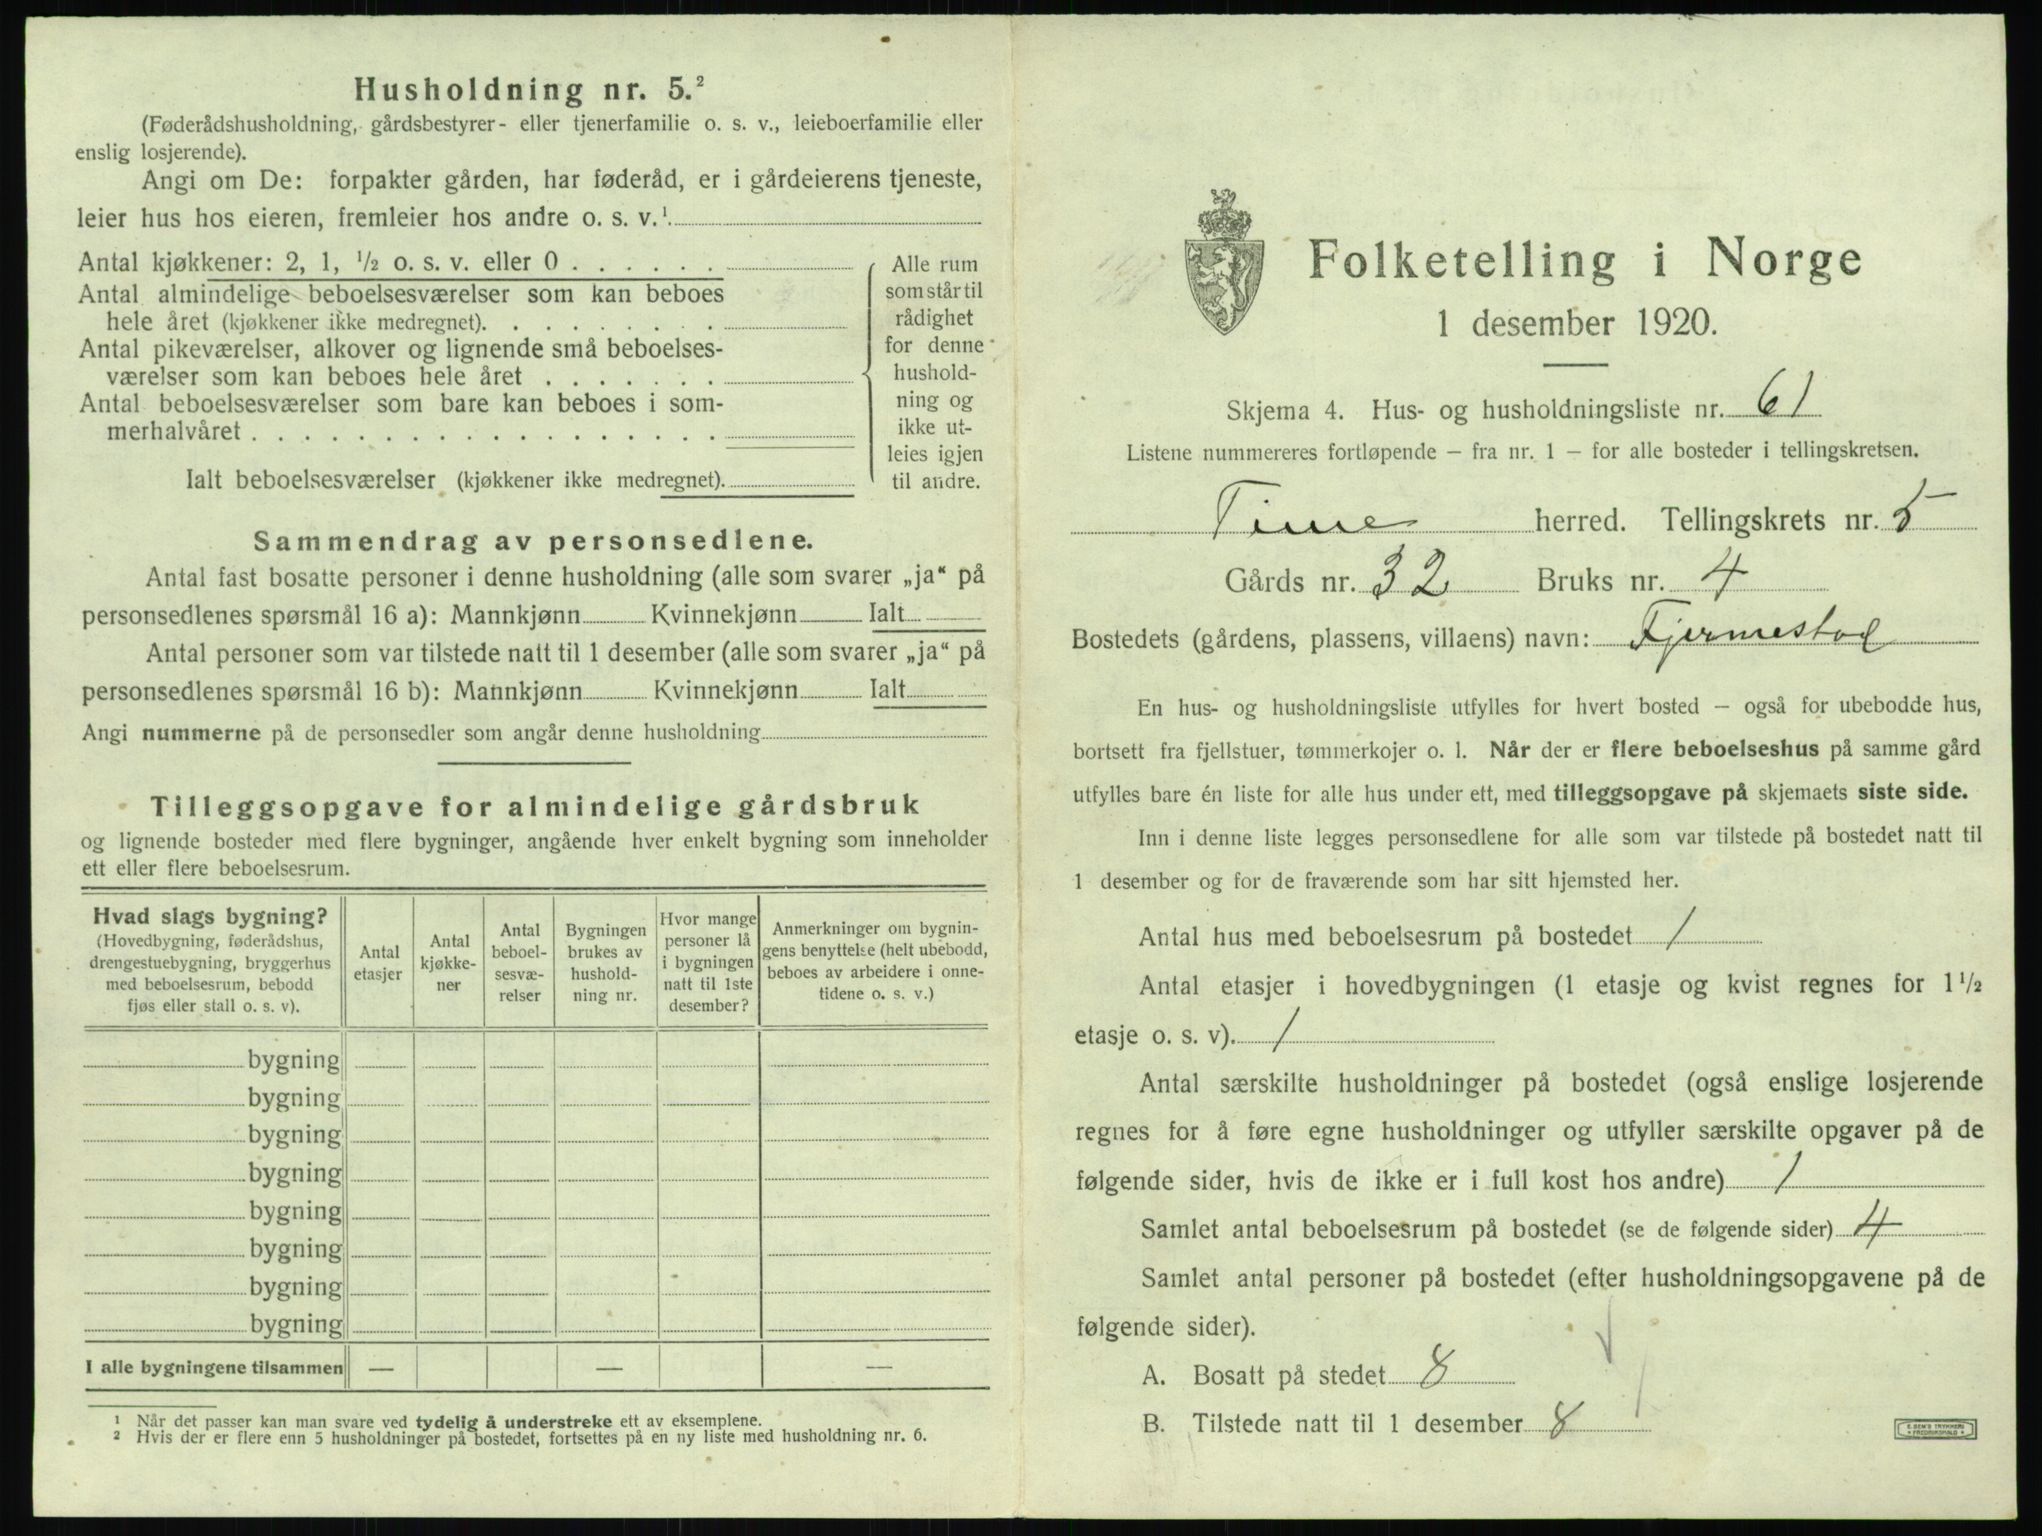 Husholdning nr. 5.²
(Føderådshusholdning, gårdsbestyrer- eller tjenerfamilie o. s. v., leieboerfamilie eller
enslig losjerende).
Angi om De: forpakter gården, har føderåd, er i gårdeierens tjeneste,
leier hus hos eieren, fremleier hos andre o. s. v.¹
Antal kjøkkener: 2, 1, ½ o. s. v. eller 0 . . . . . .
Antal almindelige beboelsesværelser som kan beboes
hele året (kjøkkener ikke medregnet). . . . . . . . .
Antal pikeværelser, alkover og lignende små beboelses-
værelser som kan beboes hele året . . . . . . .
Antal beboelsesværelser som bare kan beboes i som-
merhalvåret . . . . . . . . . . . . . . . . . .
Ialt beboelsesværelser (kjøkkener ikke medregnet).
Alle rum
som står til
rådighet
for denne
hushold-
ning og
ikke ut-
leies igjen
til andre.
Sammendrag av personsedlene.
Antal fast bosatte personer i denne husholdning (alle som svarer „ja“ på
personsedlenes spørsmål 16 a): Mannkjønn Kvinnekjønn Ialt
Antal personer som var tilstede natt til 1 desember (alle som svarer „ja“ på
personsedlenes spørsmål 16 b): Mannkjønn Kvinnekjønn Ialt
Angi nummerne på de personsedler som angår denne husholdning
Tilleggsopgave for almindelige gårdsbruk
og lignende bosteder med flere bygninger, angående hver enkelt bygning som inneholder
ett eller flere beboelsesrum.
Hvad slags bygning?
(Hovedbygning, føderådshus,
drengestuebygning, bryggerhus
med beboelsesrum, bebodd
fjøs eller stall o. s. v).
Antal
etasjer
Antal
kjøkke-
ner
Antal
beboel-
sesvæ-
relser
Bygningen
brukes av
hushold-
ning nr.
Hvor mange
personer lå
i bygningen
natt til 1ste
desember?
Anmerkninger om bygnin-
gens benyttelse (helt ubebodd,
beboes av arbeidere i onne-
tidene o. s. v.)
bygning
bygning
bygning
bygning
bygning
bygning
bygning
bygning
I alle bygningene tilsammen — — —
¹ Når det passer kan man svare ved tydelig å understreke ett av eksemplene.
² Hvis der er flere enn 5 husholdninger på bostedet, fortsettes på en ny liste med husholdning nr. 6.
Folketelling i Norge
1 desember 1920.
Skjema 4. Hus- og husholdningsliste nr. 61
Listene nummereres fortløpende — fra nr. 1 — for alle bosteder i tellingskretsen.
Time herred. Tellingskrets nr. 5
Gårds nr. 32 Bruks nr. 4
Bostedets (gårdens, plassens, villaens) navn: Fjermestad
En hus- og husholdningsliste utfylles for hvert bosted — også for ubebodde hus,
bortsett fra fjellstuer, tømmerkojer o. l. Når der er flere beboelseshus på samme gård
utfylles bare én liste for alle hus under ett, med tilleggsopgave på skjemaets siste side.
Inn i denne liste legges personsedlene for alle som var tilstede på bostedet natt til
1 desember og for de fraværende som har sitt hjemsted her.
Antal hus med beboelsesrum på bostedet 1
Antal etasjer i hovedbygningen (1 etasje og kvist regnes for 1½
etasje o. s. v). 1
Antal særskilte husholdninger på bostedet (også enslige losjerende
regnes for å føre egne husholdninger og utfyller særskilte opgaver på de
følgende sider, hvis de ikke er i full kost hos andre) 1
Samlet antal beboelsesrum på bostedet (se de følgende sider) 4
Samlet antal personer på bostedet (efter husholdningsopgavene på de
følgende sider).
A. Bosatt på stedet 8
B. Tilstede natt til 1 desember 8